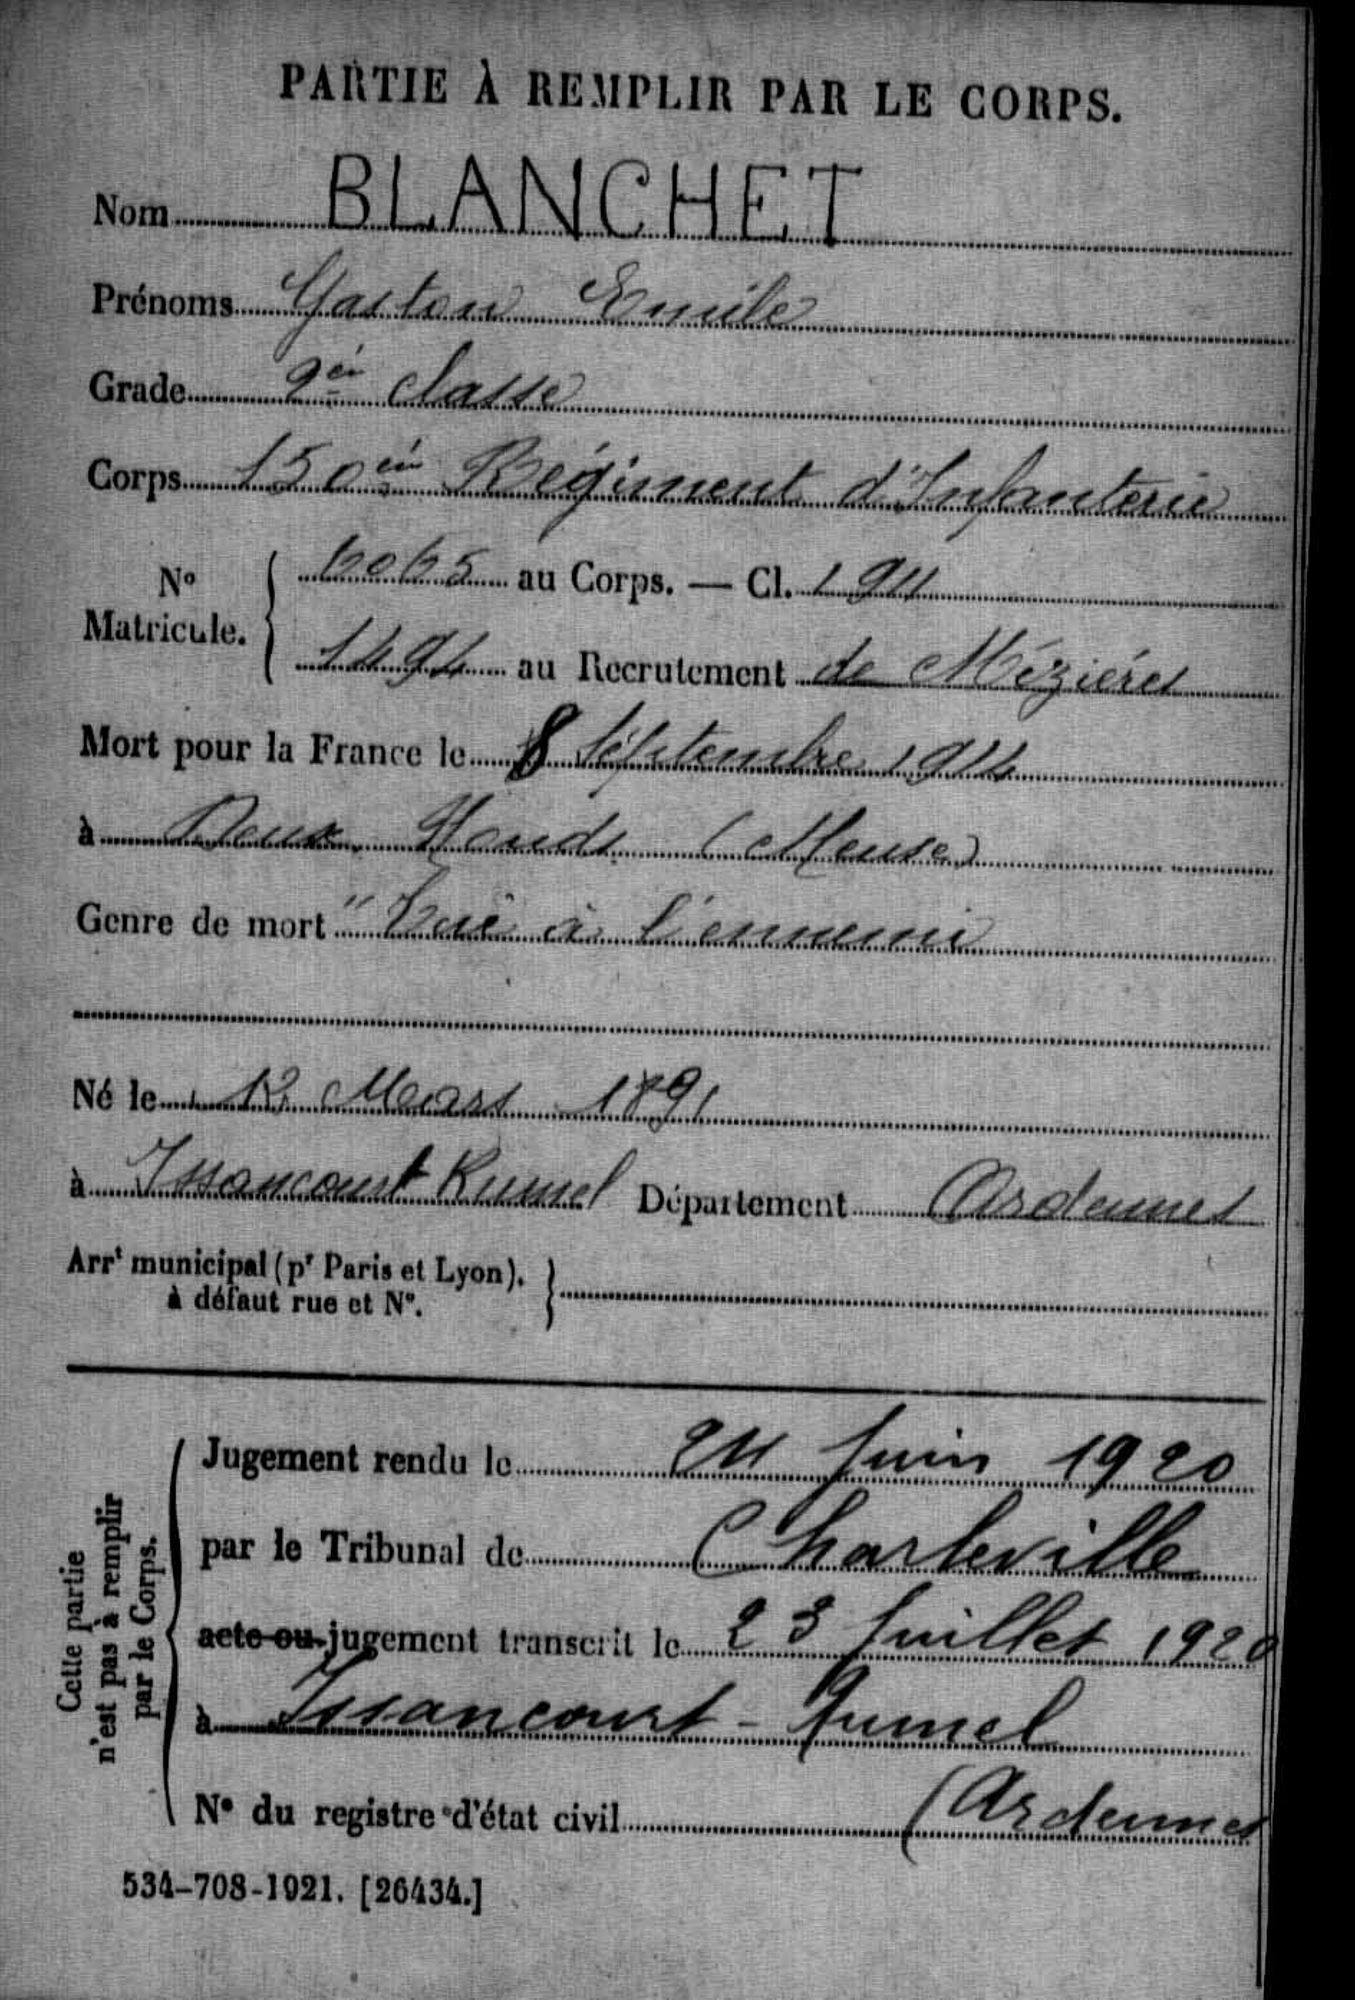 PARTIE À REMPLIR PAR LE CORPS.
Nom BLANCHET
Prénoms Gaston Emile
Grade 2è classe
Corps 150è Régiment d'Infanterie
N° Matricule. 6065 au Corps. — Cl. 1911
1494 au Recrutement de Mézières
Mort pour la France le 8 Septembre 1914
à Deux Nouds (Meuse)
Genre de mort "Tué à l'ennemi
Né le 12 Mars 1891
à Issancourt Rumel Département Ardennes
Arrt municipal (pr Paris et Lyon),
à défaut rue et N°.
Cette partie
n'est pas à remplir
par le Corps.
Jugement rendu le 24 Juin 1920
par le Tribunal de Charleville
acte ou jugement transcrit le 23 Juillet 1920
à Issancourt-Rumel
N° du registre d'état civil (Ardennes
534-708-1921. [26434.]